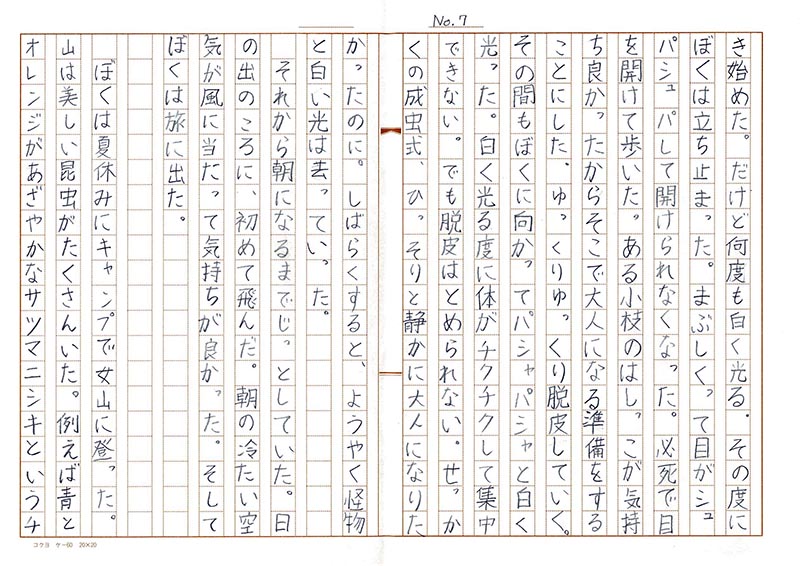 No.7
き始めた。だけど何度も白く光る。その度に
ぼくは立ち止まった。まぶしくって目がシュ
パシュパして開けられなくなった。必死で目
を開けて歩いた。ある小枝のはしっこが気持
ち良かったからそこで大人になる準備をする
ことにした。ゆっくりゆっくり脱皮していく。
その間もぼくに向かってパシャパシャと白く
光った。白く光る度に体がチクチクして集中
できない。でも脱皮はとめられない。せっか
くの成虫式、ひっそりと静かに大人になりた
かったのに。しばらくすると、ようやく怪物
と白い光は去っていった。
それから朝になるまでじっとしていた。日
の出のころに、初めて飛んだ。朝の冷たい空
気が風に当たって気持ちが良かった。そして
ぼくは旅に出た。
ぼくは夏休みにキャンプで女山に登った。
山は美しい昆虫がたくさんいた。例えば青と
オレンジがあざやかなサツマニシキというチ
コクヨ ケー60 20×20